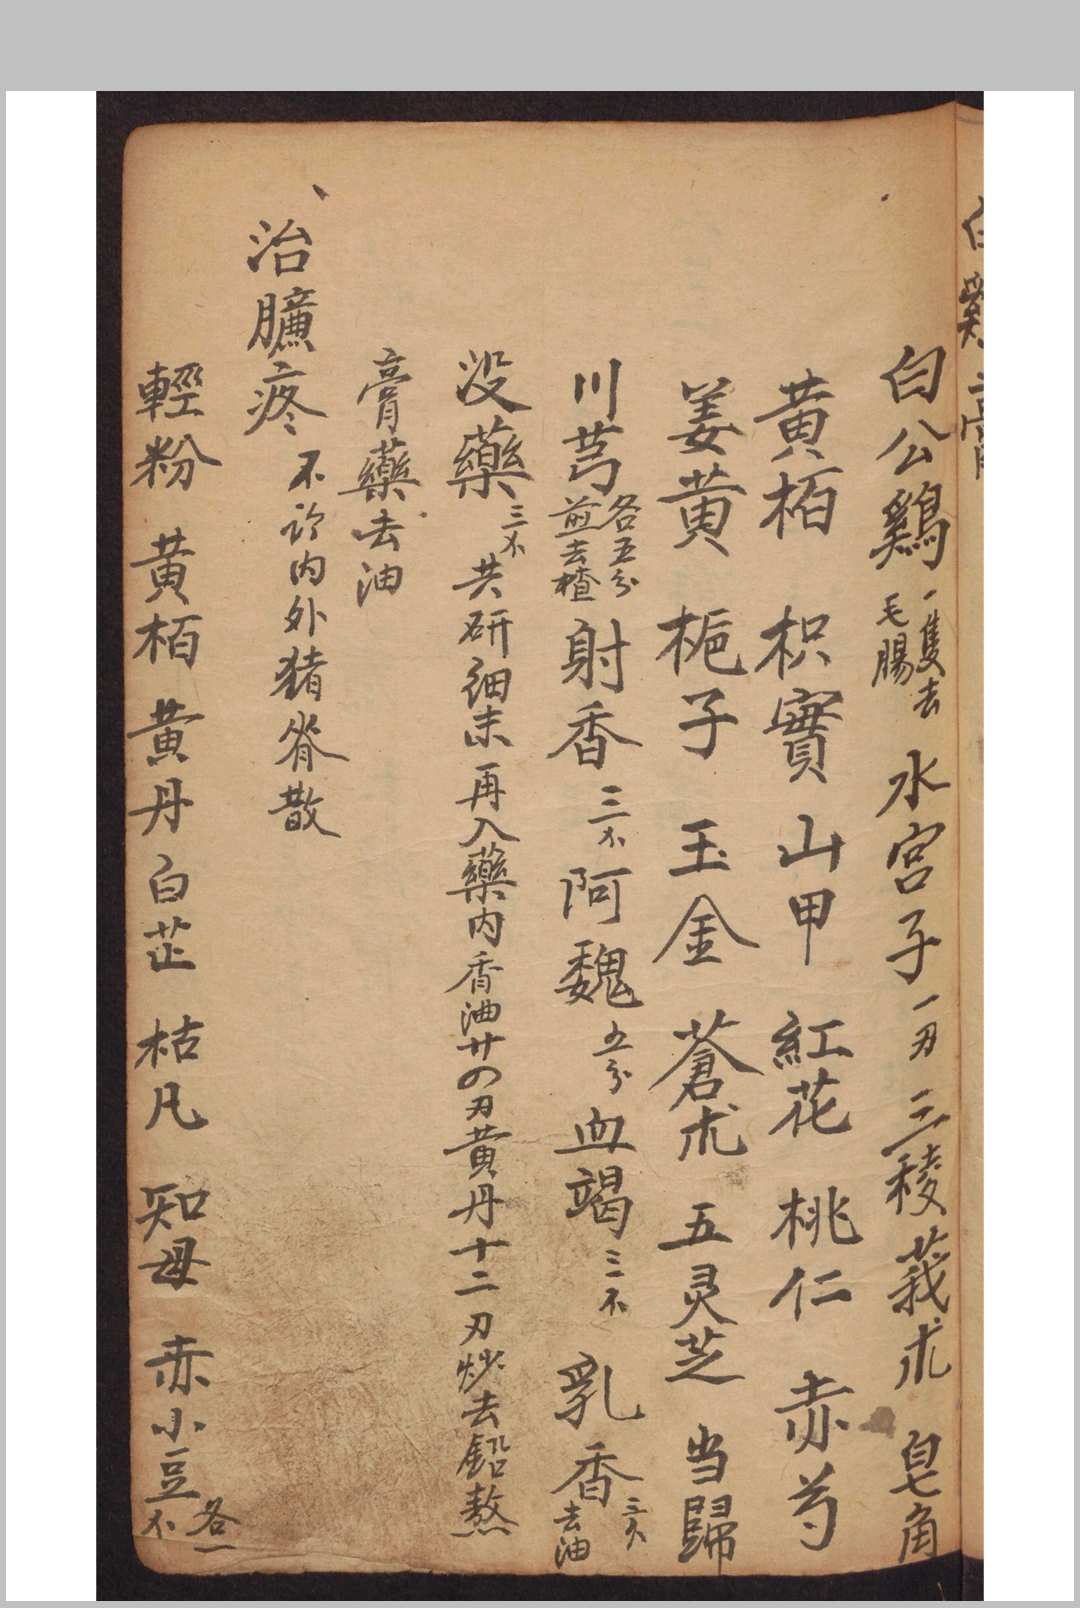 白鷄膏
白公鷄一隻去毛腸 水宮子一刃 三稜 莪朮 皂角
黄栢 枳實 山甲 紅花 桃仁 赤芍
姜黄 梔子 玉金 蒼朮 五灵芝 当歸
川芎各五分煎去楂 射香三不 阿魏五分 血竭三不 乳香三不去油
没藥三不 共研細末再入藥内香油廿四刃黄丹十二刃炒去鉛熬
膏藥去油
治臁疼 不論内外猪脊散
輕粉 黄栢 黄丹 白芷 枯凡 知母 赤小豆各一不